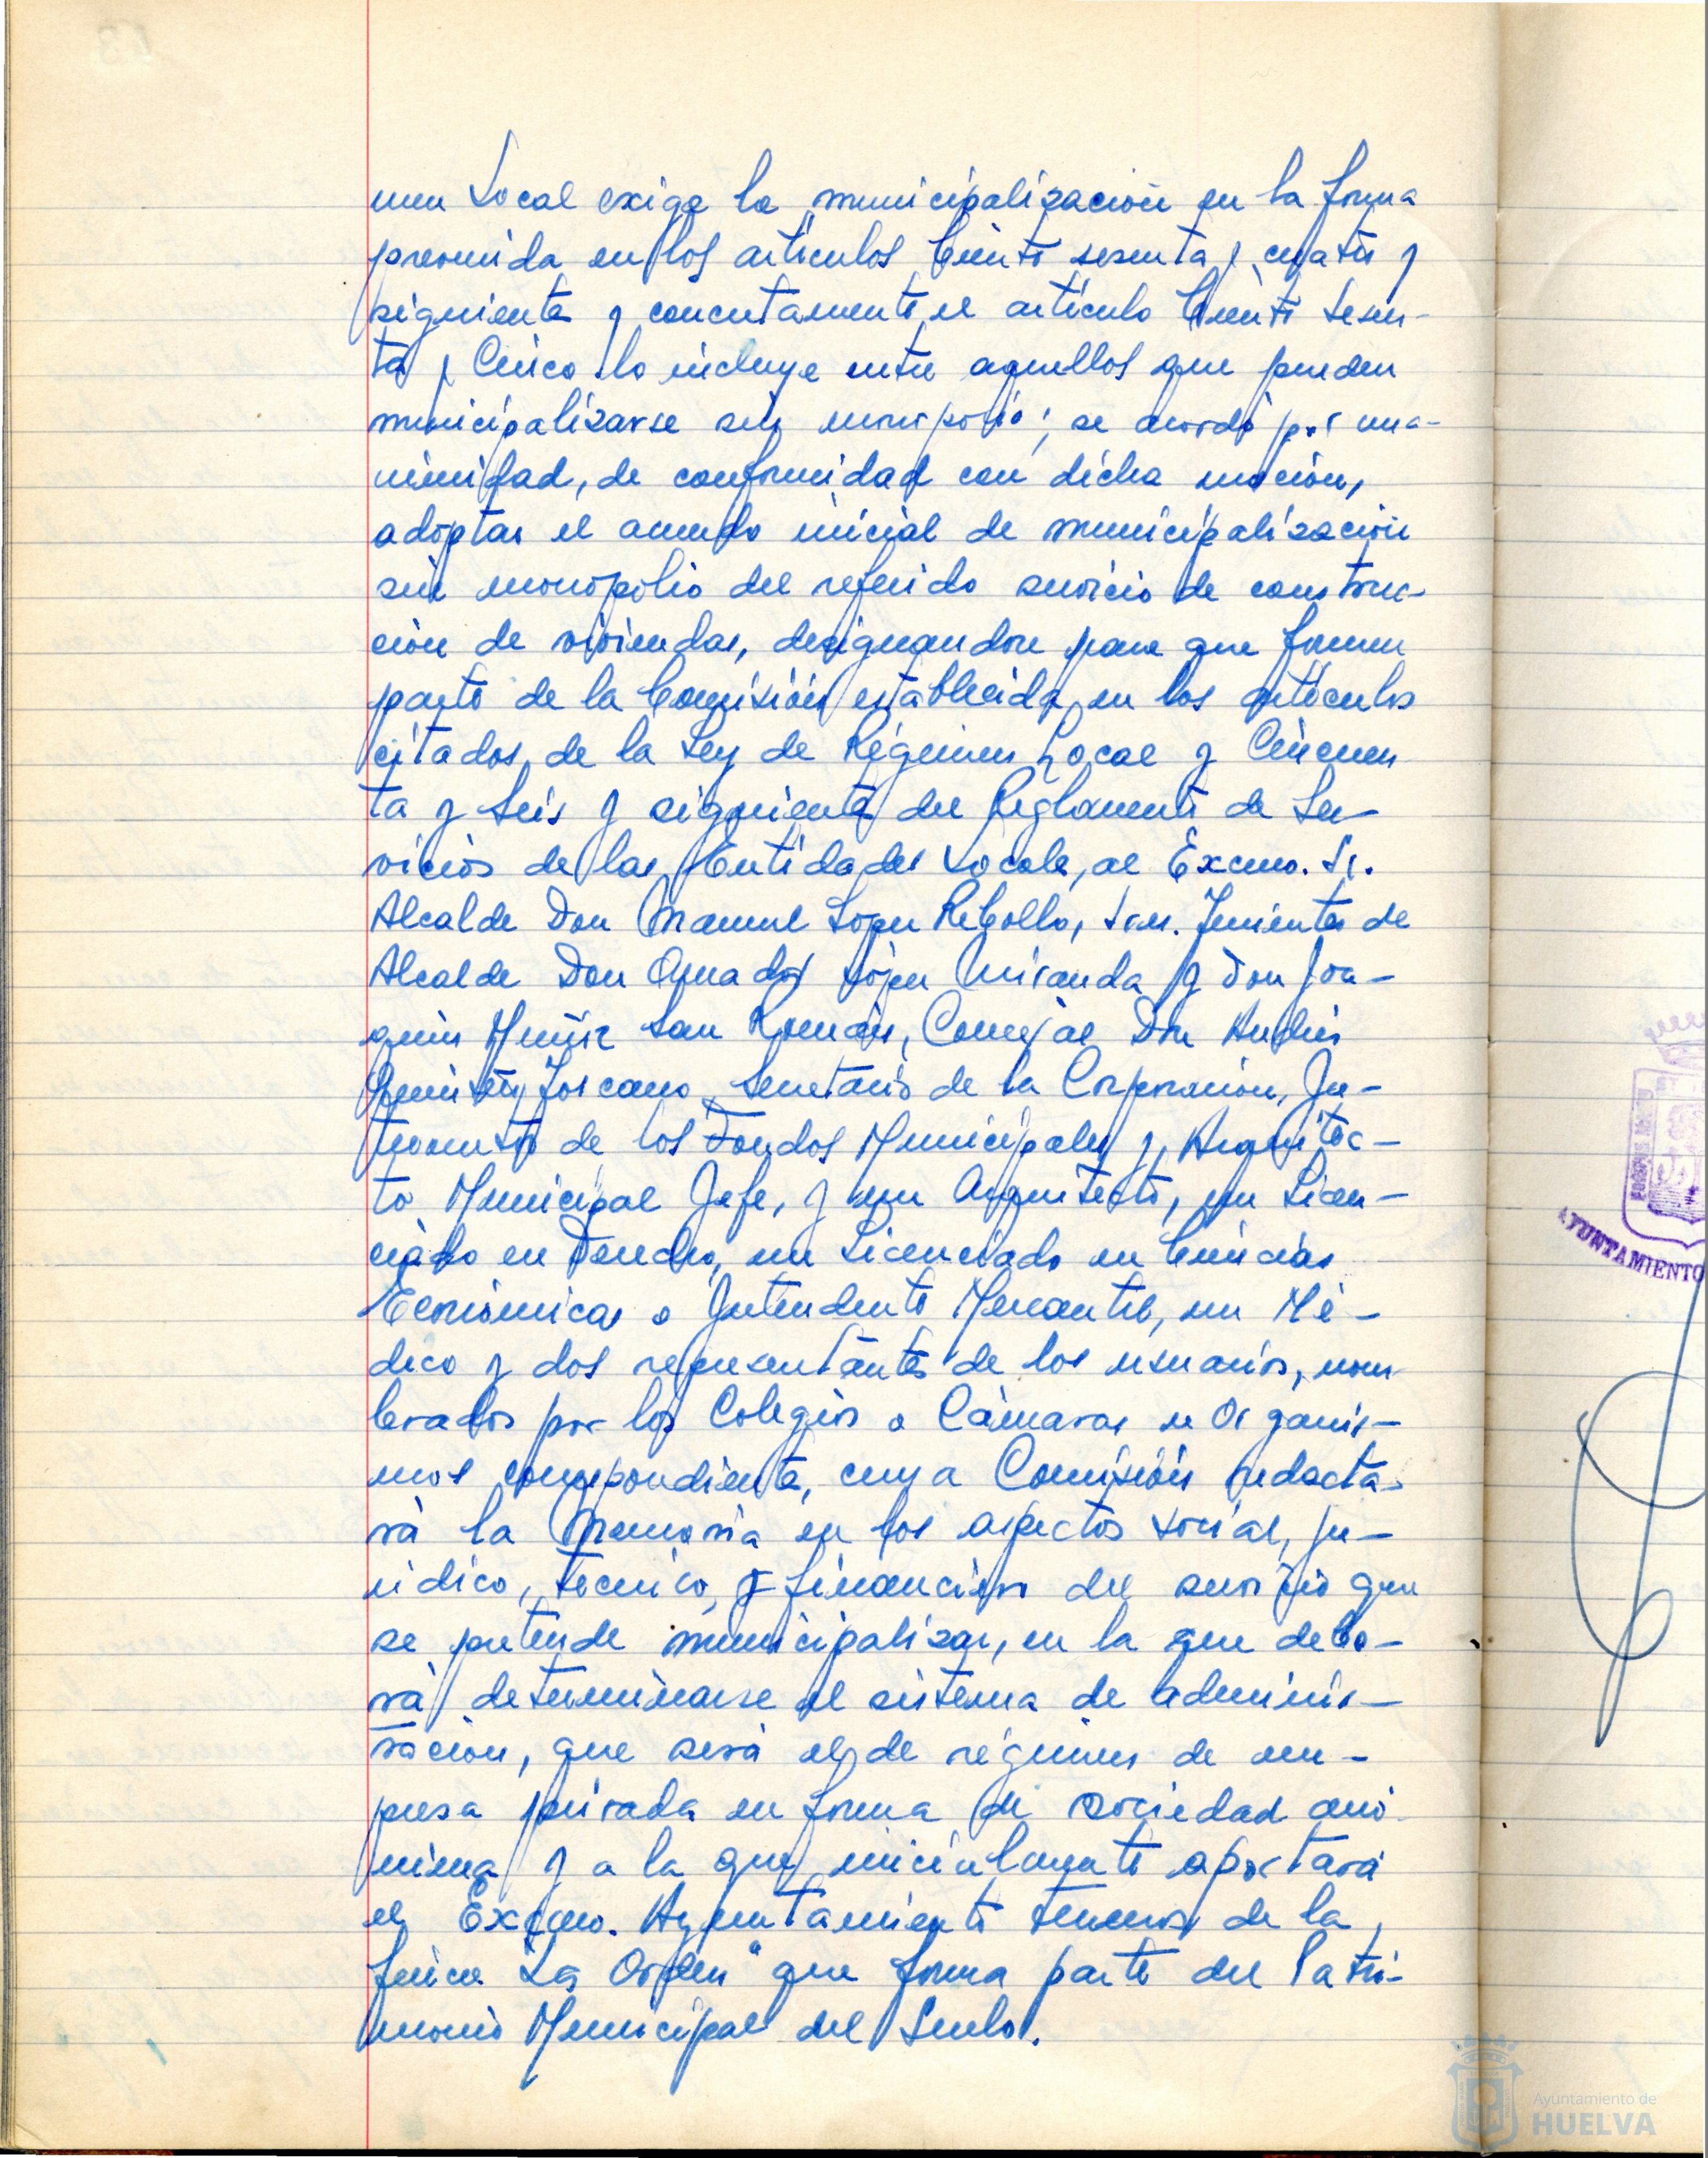 men Local exige la municipalización en la forma
prevenida en los artículos Ciento sesenta y cuatro y
siguientes y concretamente el artículo Ciento sesen-
ta y Cinco lo incluye entre aquellos que pueden
municipalizarse sin monopolio; se acordó por una-
nimidad, de conformidad con dicha moción,
adoptar el acuerdo inicial de municipalización
sin monopolio del referido servicio de construc-
ción de viviendas, designandose para que formen
parte de la Comisión establecida en los artículos
citados de la Ley de Régimen Local y Cincuen
ta y Seis y siguientes del Reglamento de Ser-
vicios de las Entidades Locales, al Excmo. Sr.
Alcalde Don Manuel López Rebollo, Sres. Tenientes de
Alcalde Don Amador López Miranda y Don Joa-
quín Muñiz San Román, Concejal Don Andrés
Toscano, Secretario de la Corporación, In-
terventor de los Fondos Municipales y Arquitec-
to Municipal Jefe, y un Arquitecto, un Licen-
ciado en Derecho, un Licenciado en Ciencias
Económicas o Intendente Mercantil, un Mé-
dico y dos representantes de los usuarios, nom
brados por los Colegios o Cámaras u Organis-
mos correspondientes, cuya Comisión redacta-
rá la Memoria en los aspectos social, ju-
rídico, técnico, y financiero del servicio que
se pretende municipalizar, en la que debe-
rá determinarse el sistema de adminis-
tración, que será el de régimen de em-
presa privada en forma de sociedad anó-
nima y a la que inicialmente aportará
el Excmo. Ayuntamiento terrenos de la
finca La Orden" que forma parte del Patri-
monio Municipal del Suelo.
AYUNTAMIENTO
Ayuntamiento de
HUELVA